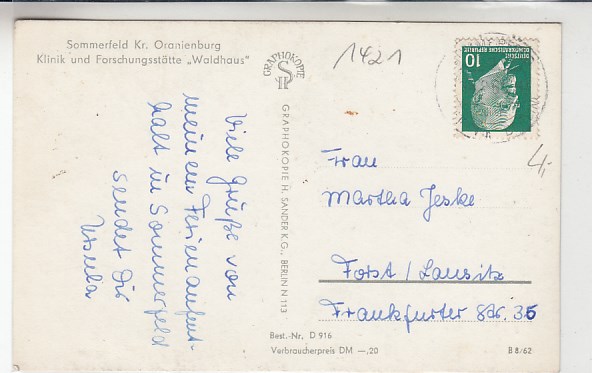 Sommerfeld Kr. Oranienburg
Klinik und Forschungsstätte „Waldhaus"
1421
GRAPHOKOPIE
H S
GRAPHOKOPIE H. SANDER K.G., BERLIN N 113
DEUTSCHE
DEMOKRATISCHE REPUBLIK
10
4,-
Viele Grüße von
meinem Ferienaufent-
halt in Sommerfeld
sendet Dir
Ursula
Frau
Martha Jeske
Forst / Lausitz
Frankfurter Str. 35
Best.-Nr. D 916
Verbraucherpreis DM —,20
B 8/62